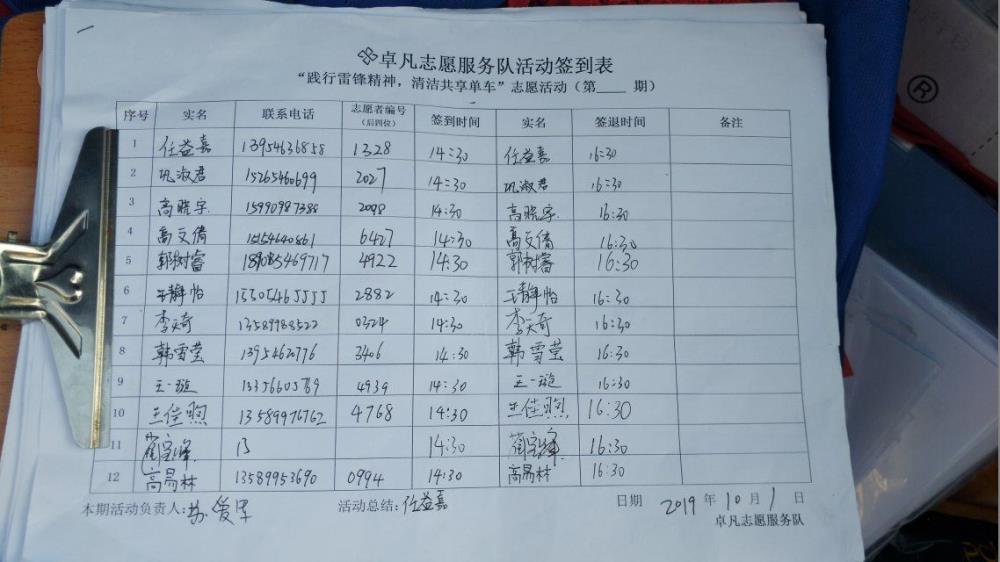 卓凡志愿服务队活动签到表
“践行雷锋精神，清洁共享单车”志愿活动（第____ 期）
序号 实名 联系电话 志愿者编号（后四位） 签到时间 实名 签退时间 备注
1 任益嘉 13954636858 1328 14:30 任益嘉 16:30
2 巩淑君 15265460699 2027 14:30 巩淑君 16:30
3 高晓宇 15990987388 2098 14:30 高晓宇 16:30
4 高文倩 15154640861 6427 14:30 高文倩 16:30
5 郭树睿 4922 14:30 郭树睿 16:30
6 王静怡 15305465555 2882 14:30 王静怡 16:30
7 李天奇 13589988522 0324 14:30 李天奇 16:30
8 韩雪莹 13954620776 3406 14:30 韩雪莹 16:30
9 王一璇 4939 14:30 王一璇 16:30
10 王佳煦 13589976762 4768 14:30 王佳煦 16:30
11 13 14:30 16:30
12 高易林 13589953690 0994 14:30 高易林 16:30
本期活动负责人: 活动总结: 任益嘉 日期 2019 年 10 月 1 日
卓凡志愿服务队
®